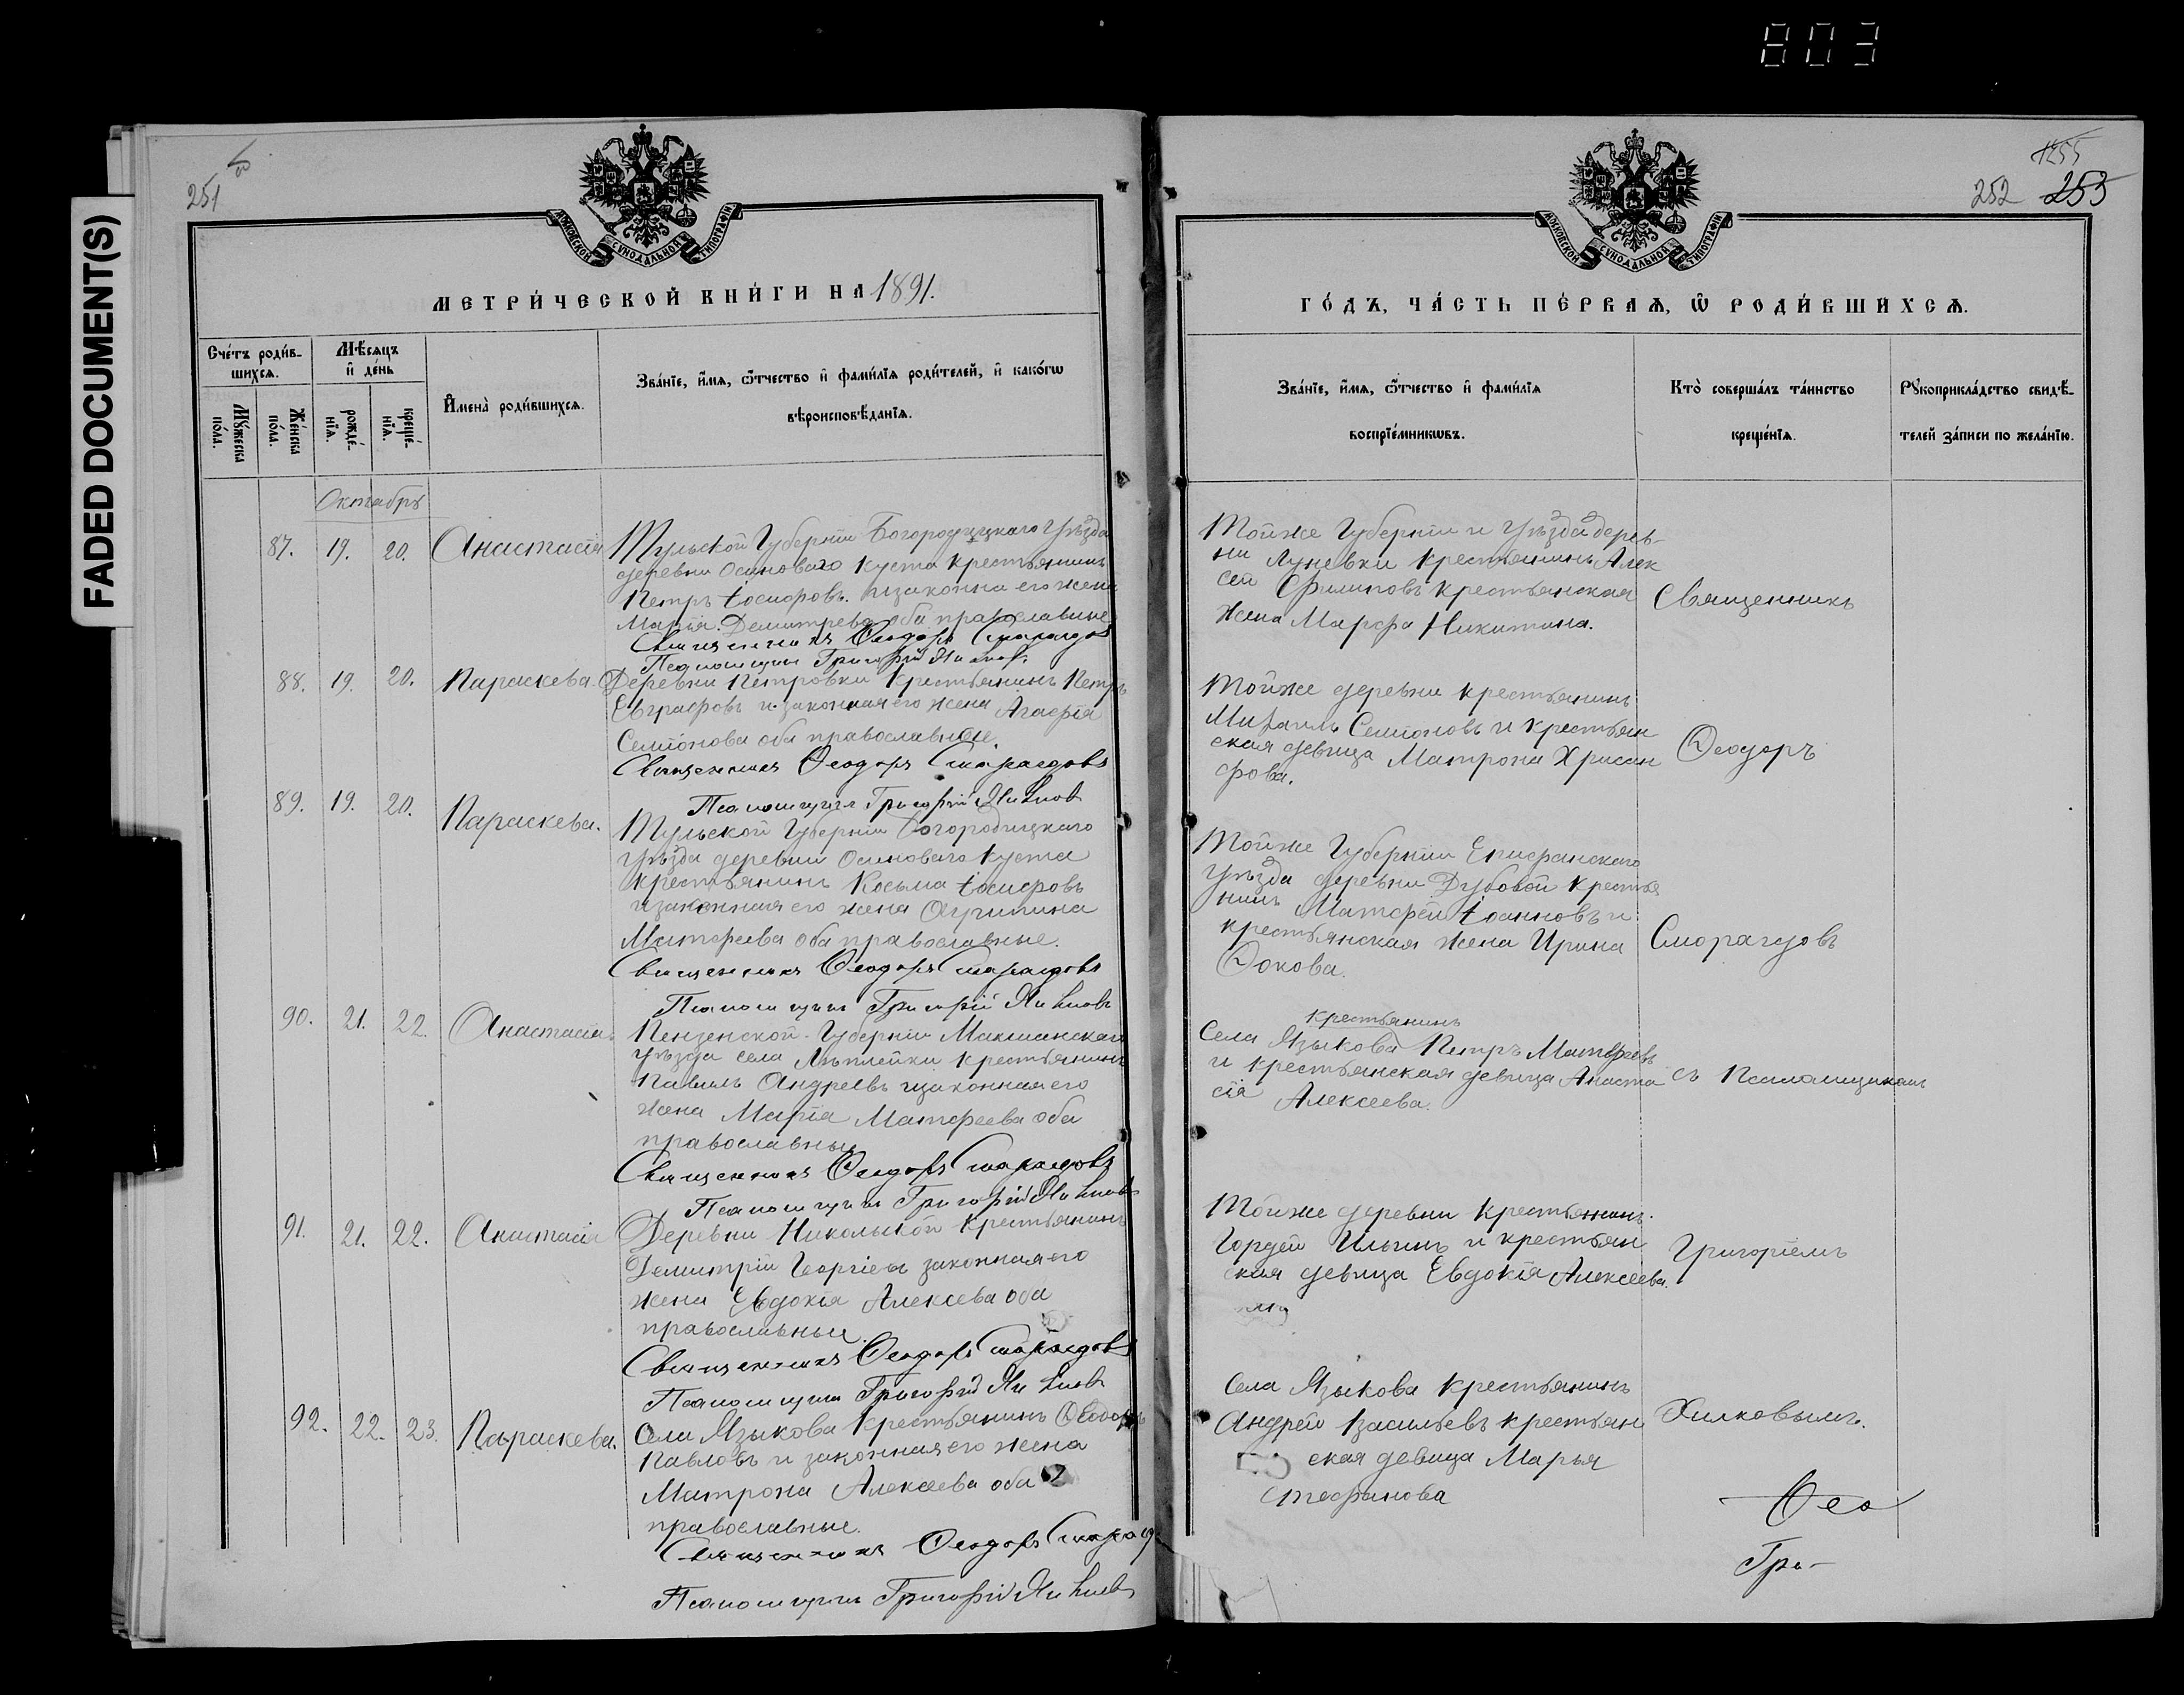 803
FADED DOCUMENT(S)
251
МОСКОВСКОЙ СѴНОДАЛЬНОЙ ТИПОГРАФІИ
МЕТРИ́ЧЕСКОЙ КНИ́ГИ НА 1891.
Сче́тъ роди́в-
шихсѧ.
Мѣ́сѧцъ
и҆ де́нь
И҆мена̀ роди́вшихсѧ.
Зва́нїе, и҆́мѧ, ѻ҆́тчество и҆ фами́лїѧ роди́телей, и҆ како́гѡ
вѣроисповѣ́данїѧ.
Мꙋ́жеска
по́ла.
Же́нска
по́ла.
рожде́-
нїѧ.
креще́-
нїѧ.
Октябрь
87. 19. 20. Анастасія
Тульской Губерніи Богородицкаго Уѣзда
деревни Осиноваго Куста крестьянинъ
Петръ Іосифовъ. изаконна его жена
Марія Демитрева оба православные
Священникъ Ѳеодоръ Смарагдовъ
Псаломщикъ Григорій
88. 19. 20. Параскева.
Деревни Петровки Крестьянинъ Петръ
Евграфовъ и законная его жена Агафія
Семіонова оба православные.
Священникъ Ѳеодоръ Смарагдовъ
Псаломщикъ Григорій
89. 19. 20. Параскева.
Тульской Губерніи Богородицкаго
Уѣзда деревни Осиноваго Куста
крестьянинъ Косьма Іосифовъ
изаконная его жена Агрипина
Матфеева оба православные.
Священникъ Ѳеодоръ Смарагдовъ
Псаломщикъ Григорій
90. 21. 22. Анастасія
Пензенской Губерніи Мокшанскаго
Уѣзда села крестьянинъ
Павилъ Андреевъ изаконная его
жена Марія Матфеева оба
православные
Священникъ Ѳеодоръ Смарагдовъ
Псаломщикъ Григорій
91. 21. 22. Анастасія
Деревни Никольской крестьянинъ
Демитрій Георгіевъ законная его
жена Евдокія Алексева оба
православные.
Священникъ Ѳеодоръ Смарагдовъ
Псаломщикъ Григорій
92. 22. 23. Параскева.
Села Языкова крестьянинъ Ѳеодоръ
Павловъ и законная его жена
Матрона Алексеева оба
православные.
Священникъ Ѳеодоръ Смарагд
Псаломщикъ Григорій
1255
252 253
МОСКОВСКОЙ СѴНОДАЛЬНОЙ ТИПОГРАФІИ
ГО́ДЪ, ЧА́СТЬ ПЕ́РВАѦ, Ѡ҆ РОДИ́ВШИХСѦ.
Зва́нїе, и҆́мѧ, ѻ҆́тчество и҆ фами́лїѧ
воспрїе́мникѡвъ.
Кто̀ соверша́лъ та́инство
креще́нїѧ.
Рꙋкоприкла́дство свидѣ́-
телей за́писи по жела́нїю.
Тойже Губерніи и Уѣзда дерев-
ни Луневки крестьянинъ Алек
сей Филиповъ крестьянская
жена Марфа Никитина.
Священникъ
Тойже деревни крестьянинъ
Михаилъ Семіоновъ и крестьян
ская девица Матрона Хрисан
фова.
Ѳеодоръ
Тойже Губерніи Епифанскаго
Уѣзда деревни Дубовой крестья
нинъ Матфей Іоанновъ и
крестьянская жена Ирина
Фокова.
Смарагдовъ
крестьянинъ
Села Языкова Петръ Матвѣевъ
и крестьянская девица Анаста
сія Алексеева.
съ Псаломщикомъ
Тойже деревни крестьянинъ.
Гордей Ильинъ и крестьян
ская девица Евдокія Алексеева.
Григоріемъ
Села Языкова крестьянинъ
Андрей Васильевъ крестьян
ская девица Марья
Стефанова
Хилковымъ.
Ѳео
Гри-